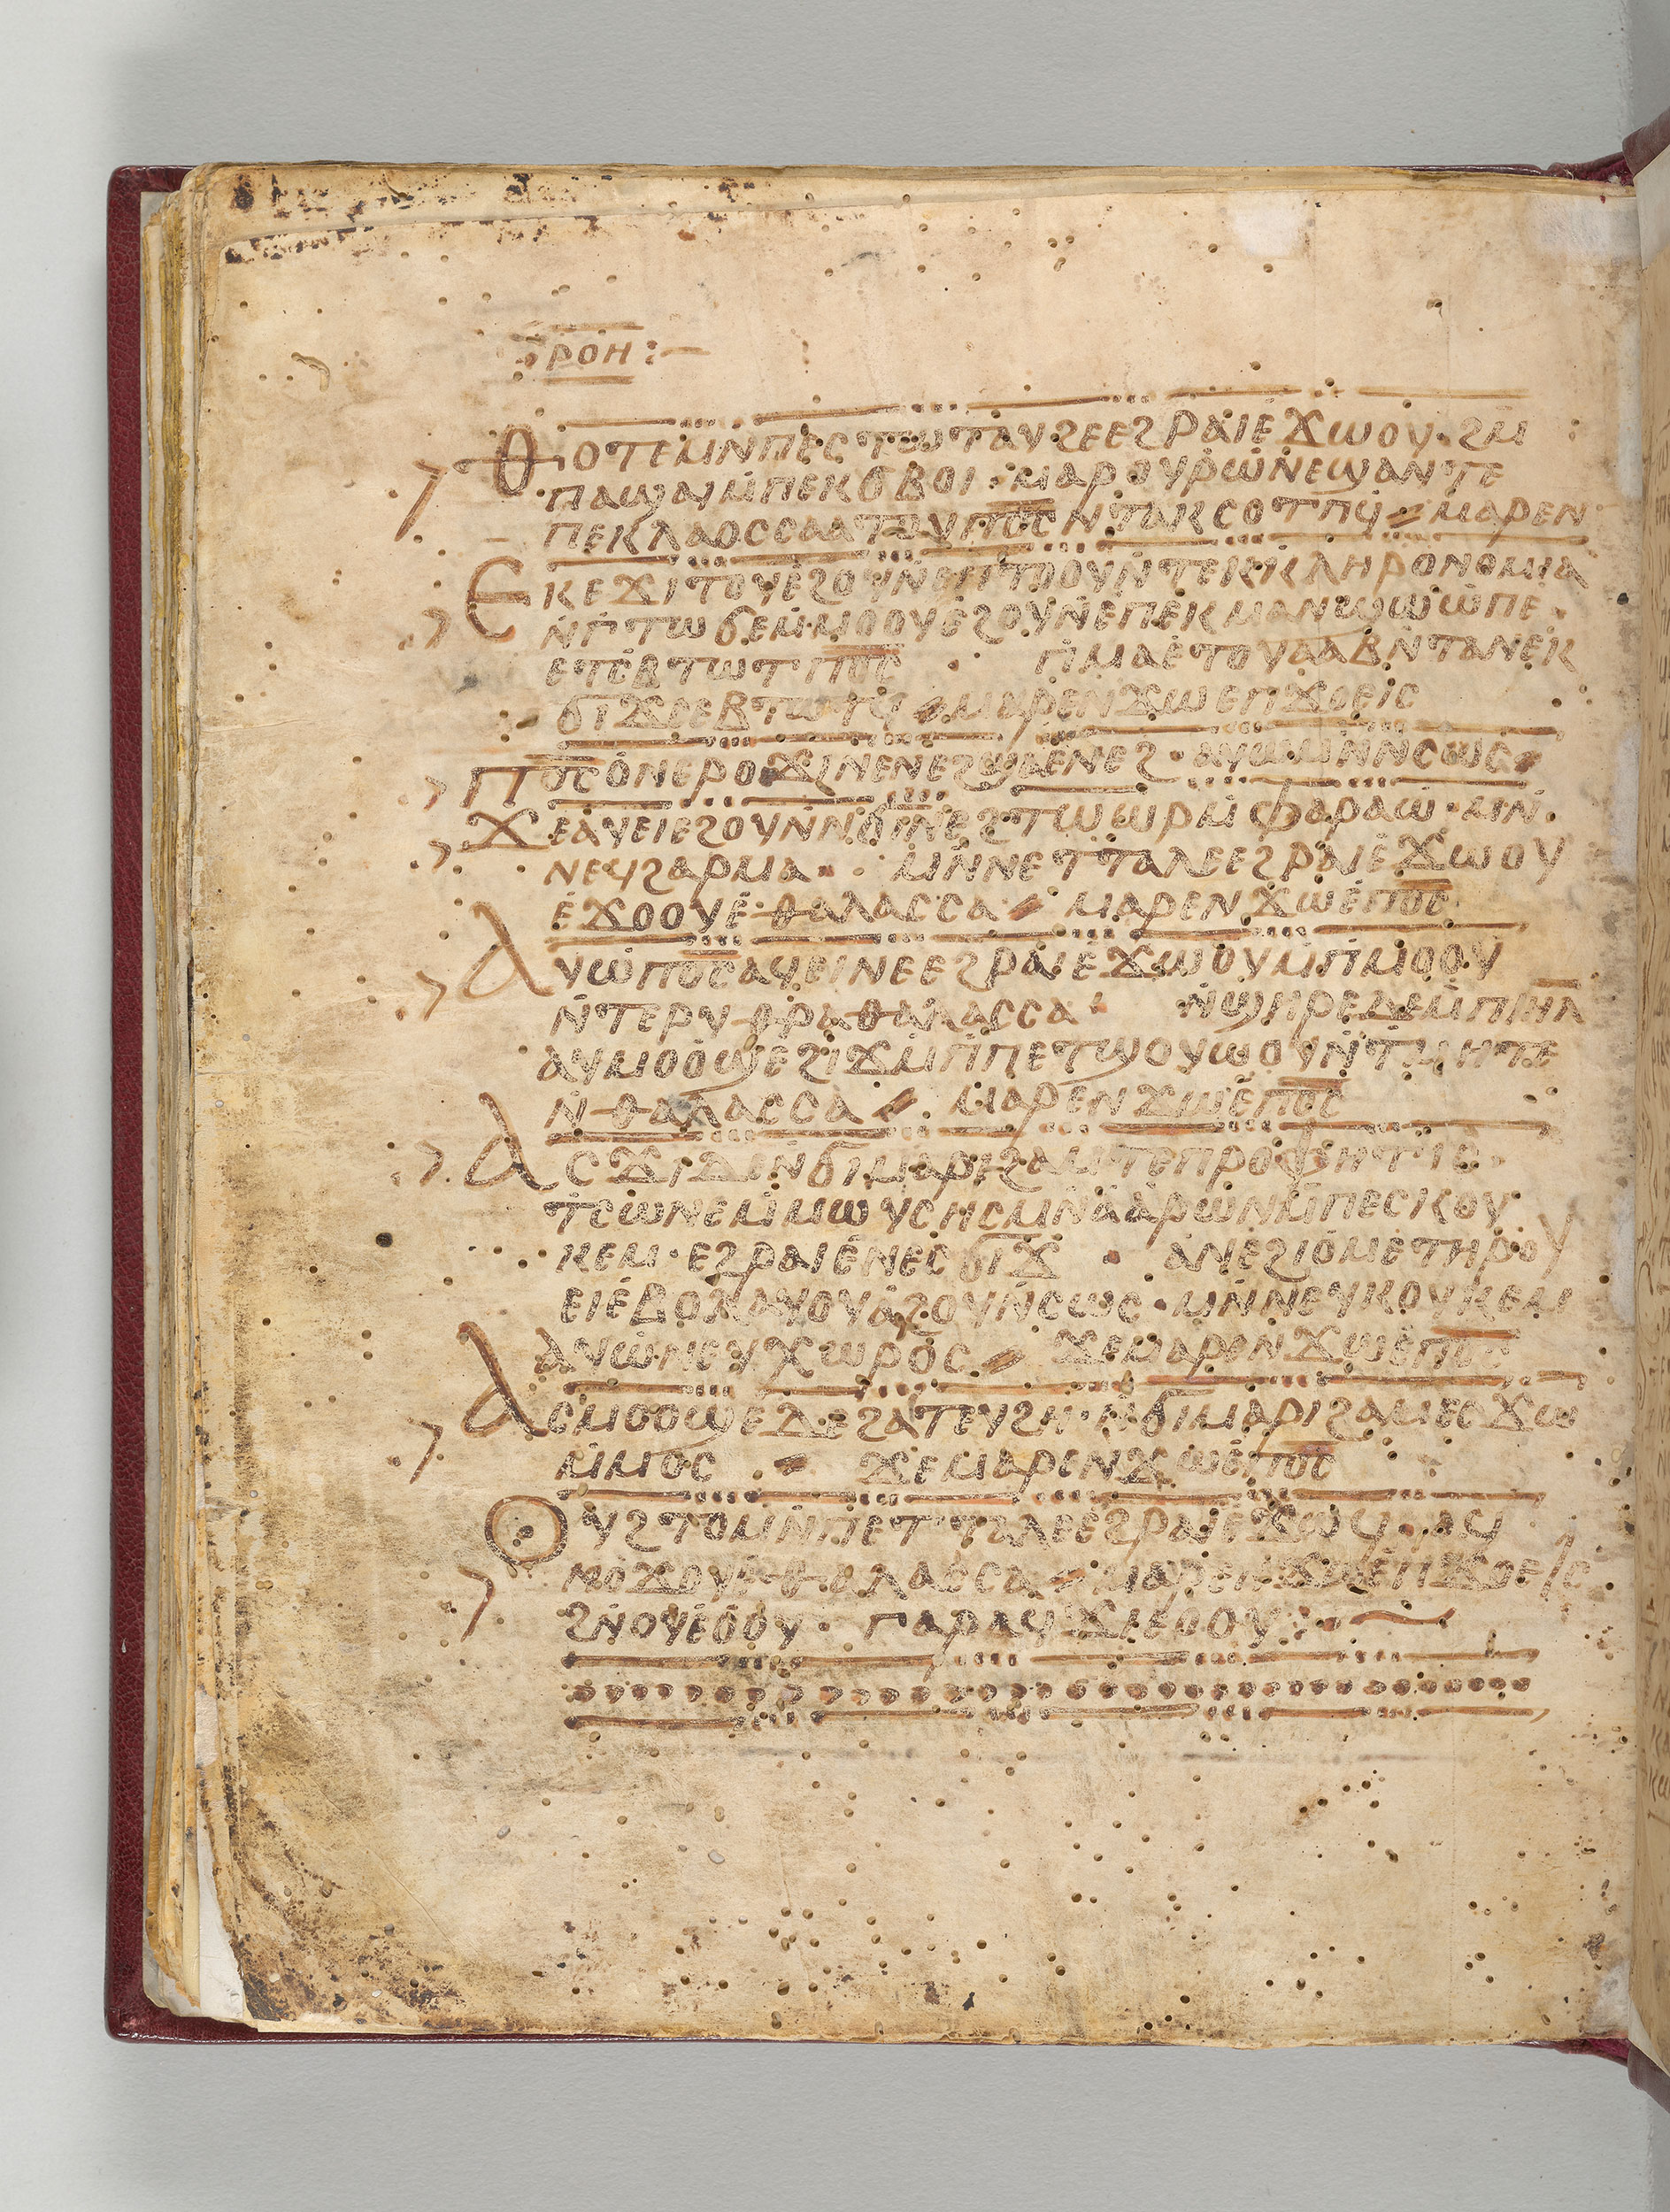 ⲣⲟⲏ
ⲑⲟⲧⲉ ⲙⲛ ⲡⲉⲥⲧⲱⲧ ⲁⲩϩⲉ ⲉϩⲣⲁⲓ ⲉϫⲱⲟⲩ · ϩⲙ
ⲡⲁϣⲁⲓ ⲙⲡⲉⲕϭⲃⲟⲓ : ⲙⲁⲣⲟⲩⲣⲱⲛⲉ ϣⲁⲛⲧⲉ
ⲡⲉⲕⲗⲁⲟⲥ ⲥⲁⲁⲧⲟⲩ ⲡⲟ̅ⲥ̅ ⲛⲧⲁⲕⲥⲟⲧⲡϥ ⲙⲁⲣⲉⲛ
ⲉⲕⲉϫⲓⲧⲟⲩ ⲉϩⲟⲩⲛ ⲉⲡⲧⲟⲟⲩ ⲛⲧⲉⲕⲕⲗⲏⲣⲟⲛⲟⲙⲓⲁ
ⲛⲅⲧⲱϭⲉ ⲙⲙⲟⲟⲩ ⲉϩⲟⲩⲛ ⲉⲡⲉⲕⲙⲁⲛϣⲱⲡⲉ
ⲉⲧⲥⲃⲧⲱⲧ ⲡⲟ̅ⲥ̅ ⲡⲙⲁ ⲉⲧⲟⲩⲁⲁⲃ ⲛⲧⲁⲛⲉⲕ
ϭⲓϫ ⲥⲉⲃⲧⲱⲧϥ ⲙⲁⲣⲉⲛϫⲱ ⲉⲡϫⲟⲉⲓⲥ
ⲡⲟ̅ⲥ̅ ⲟ ⲛⲉⲣⲟ ϫⲓⲛ ⲉⲛⲉϩ ϣⲁ ⲉⲛⲉϩ · ⲁⲩⲱ ⲙⲛⲛⲥⲱⲥ
ϫⲉ ⲁⲩⲉⲓ ⲉϩⲟⲩⲛ ⲛϭⲓ ⲛⲉϩⲧⲱⲱⲣ ⲙⲫⲁⲣⲁⲱ · ⲙⲛ
ⲛⲉϥϩⲁⲣⲙⲁ ⲙⲛ ⲛⲉⲧⲧⲁⲗⲉ ⲉϩⲣⲁⲓ ⲉϫⲱⲟⲩ
ⲉϫⲟⲟⲩ ⲉⲑⲁⲗⲁⲥⲥⲁ ⲙⲁⲣⲉⲛϫⲱ ⲉⲡⲟ̅ⲥ̅
ⲁⲩⲱ ⲡⲟ̅ⲥ̅ ⲁϥⲉⲓⲛⲉ ⲉϩⲣⲁⲓ ⲉϫⲱⲟⲩ ⲙⲡⲙⲟⲟⲩ
ⲛⲧⲉⲣⲩⲑⲣⲁ ⲑⲁⲗⲁⲥⲥⲁ ⲛϣⲏⲣⲉ ⲇⲉ ⲙⲡⲓ̅ⲏ̅ⲗ̅
ⲁⲩⲙⲟⲟϣⲉ ϩⲓϫⲙ ⲡⲡⲉⲧϣⲟⲩⲱⲟⲩ ⲛⲧⲙⲏⲧⲉ
ⲛⲑⲁⲗⲁⲥⲥⲁ ⲙⲁⲣⲉⲛϫⲱ ⲉⲡⲟ̅ⲥ̅
ⲁⲥϫⲓ ⲇⲉ ⲛϭⲓ ⲙⲁⲣⲓϩⲁⲙ ⲧⲉⲡⲣⲟⲫⲏⲧⲓⲥ
ⲧⲥⲱⲛⲉ ⲙⲙⲱⲩⲥⲏⲥ ⲙⲛ ⲁⲁⲣⲱⲛ ⲙⲡⲉⲥⲕⲟⲩ
ⲕⲉⲙ · ⲉϩⲣⲁⲓ ⲉⲛⲉⲥϭⲓϫ ⲁⲛⲉϩⲓⲟⲙⲉ ⲧⲏⲣⲟⲩ
ⲉⲓ ⲉⲃⲟⲗ ⲁⲩⲟⲩⲁϩⲟⲩ ⲛⲥⲱⲥ · ⲙⲛ ⲛⲉⲩⲕⲟⲩⲕⲉⲙ
ⲁⲩⲱ ⲛⲉⲩⲭⲱⲣⲟⲥ ϫⲉ ⲙⲁⲣⲉⲛϫⲱ ⲉⲡⲟ̅ⲥ̅
ⲁⲥⲙⲟⲟϣⲉ ⲇⲉ ϩⲁⲧⲉⲩϩⲏ · ⲛϭⲓ ⲙⲁⲣⲓϩⲁⲙ ⲉⲥϫⲱ
ⲙⲙⲟⲥ ϫⲉ ⲙⲁⲣⲉⲛϫⲱ ⲉⲡⲟ̅ⲥ̅
ⲟⲩϩⲧⲟ ⲙⲛ ⲡⲉⲧⲧⲁⲗⲉ ⲉϩⲣⲁⲓ ⲉϫⲱϥ · ⲁϥ
ⲛⲟϫⲟⲩ ⲉⲑⲁⲗⲁⲥⲥⲁ ⲙⲁⲣⲉⲛϫⲱ ⲉⲡϫⲟⲉⲓⲥ
ϩⲛ ⲟⲩⲉⲟⲟⲩ · ⲅⲁⲣ ⲁϥϫⲓ ⲉⲟⲟⲩ :